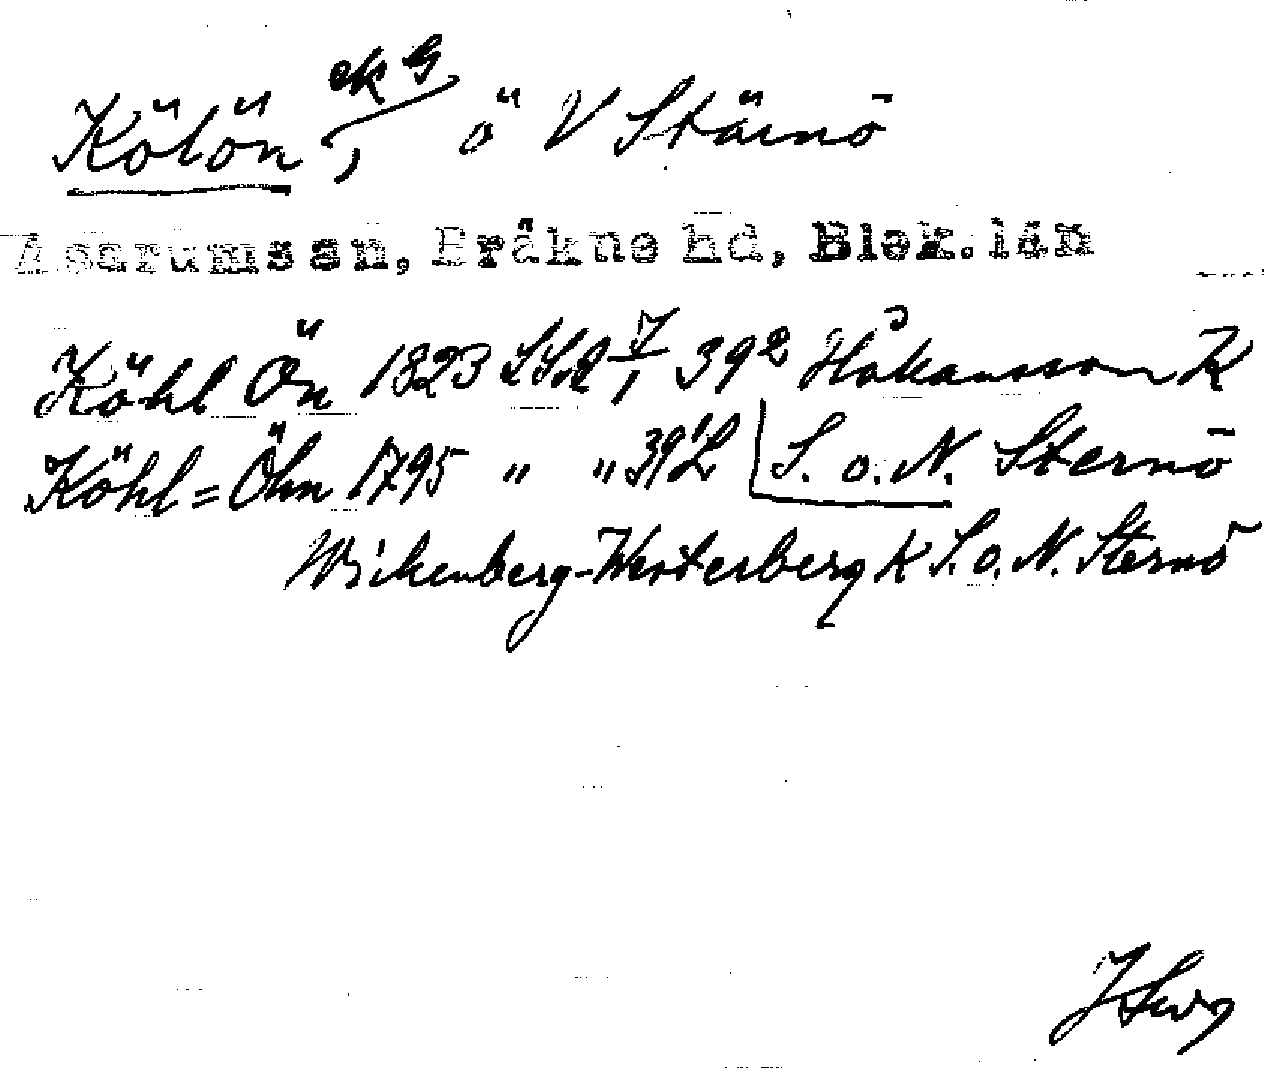 Kölön, ek G ö V Stärnö
Asarums sn, Bräkne hd, Blek. län
Köhl Ön 1823 LSA 7/1 39² Håkansson K
Köhl=Öhn 1795 " " 39¹ L S. o. N. Sternö
Wickenberg-Westerberg K S. o. N. Sternö